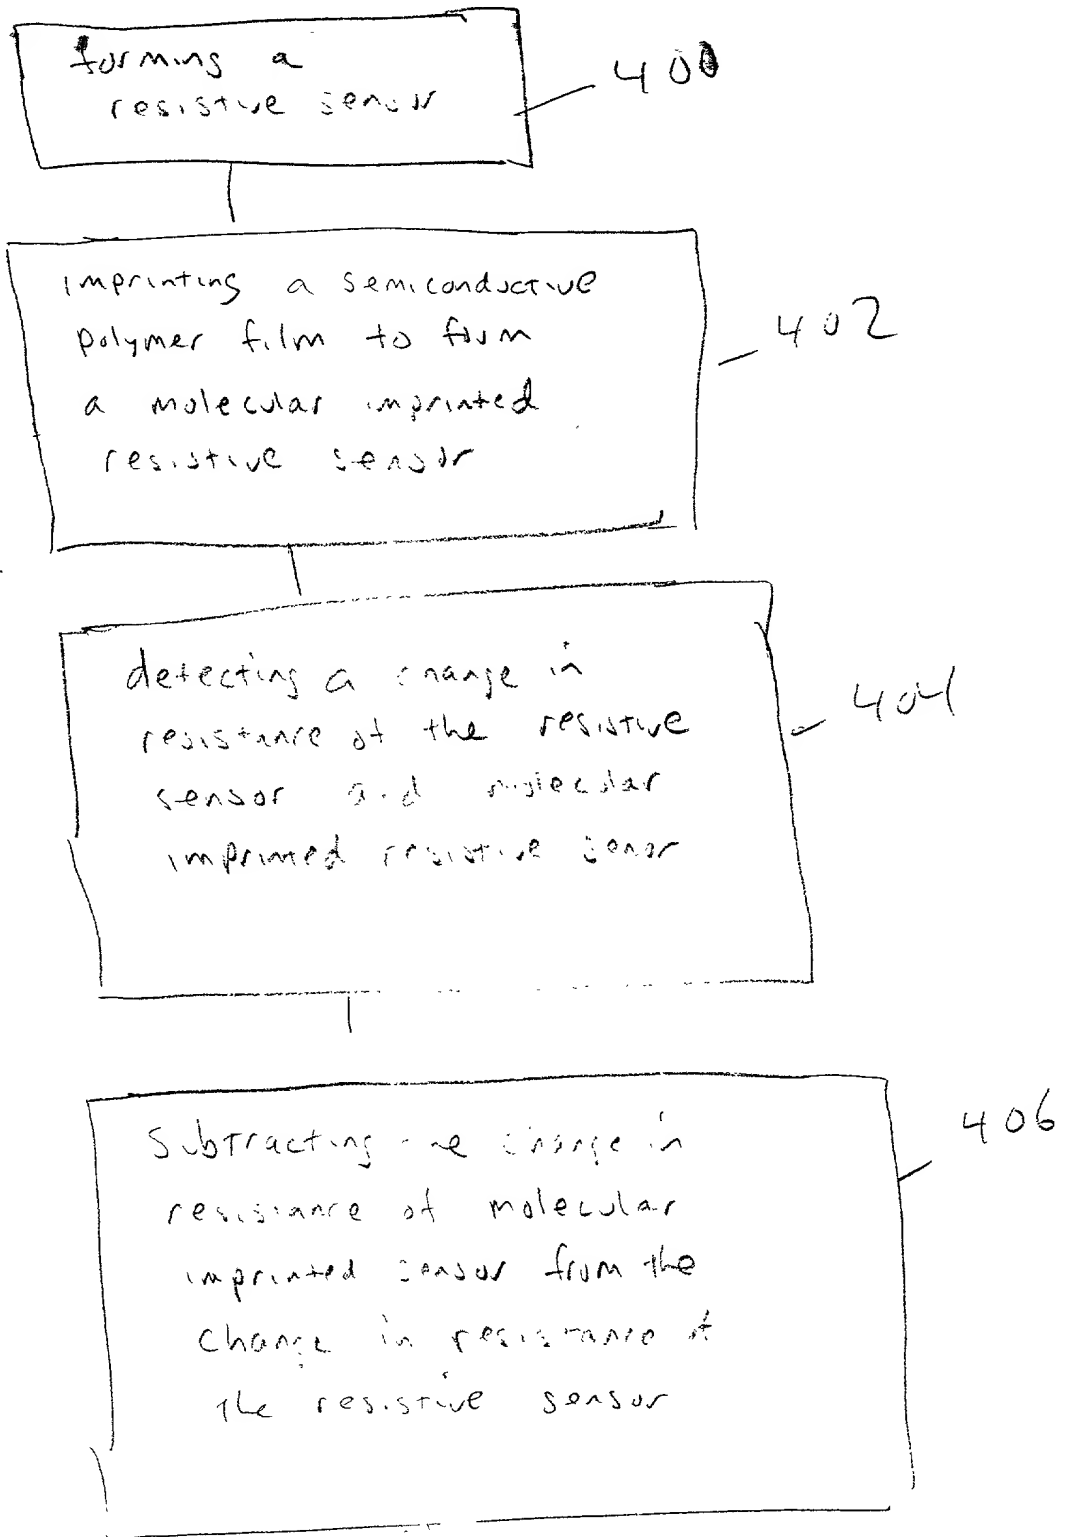 forming a
resistive sensor
400
imprinting a semiconductive
polymer film to form
a molecular imprinted
resistive sensor
402
detecting a change in
resistance of the resistive
sensor and molecular
imprinted resistive sensor
404
Subtracting the change in
resistance of molecular
imprinted sensor from the
change in resistance of
the resistive sensor
406